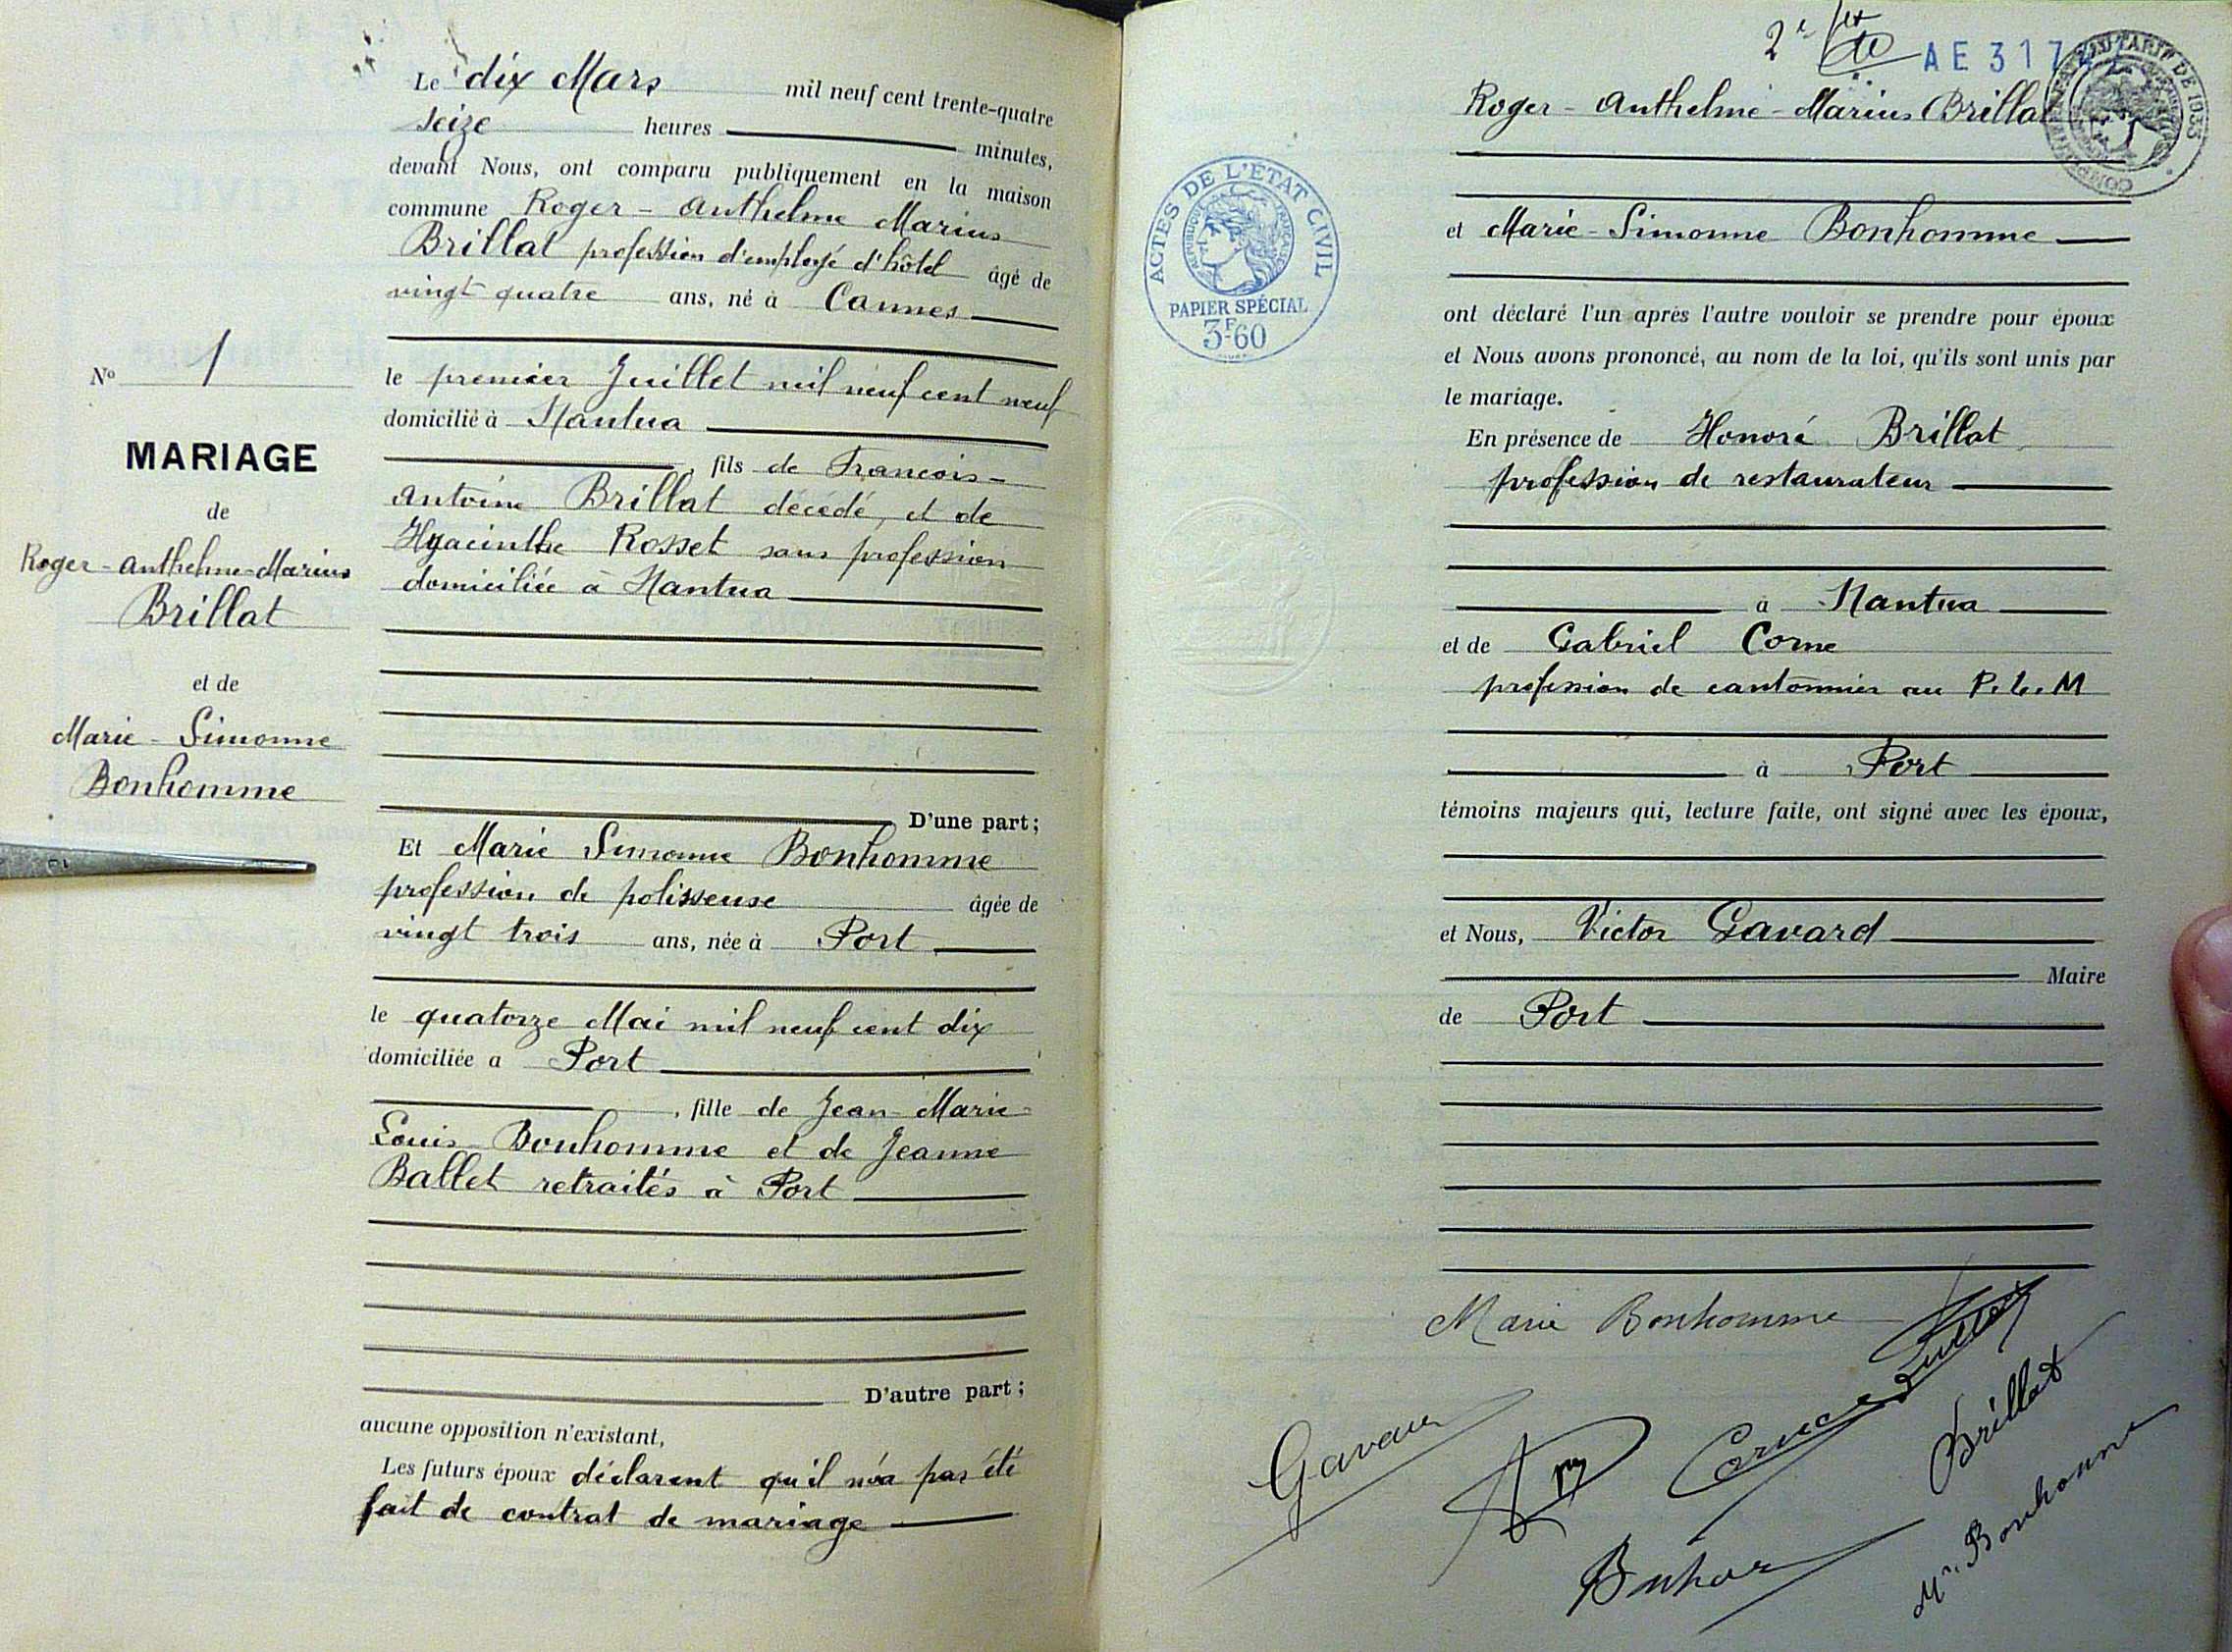 Le dix Mars mil neuf cent trente-quatre
seize heures minutes,
devant Nous, ont comparu publiquement en la maison
commune Roger - Anthelme Marius
Brillat profession d'employé d'hôtel âgé de
vingt quatre ans, né à Cannes
le premier Juillet mil neuf cent neuf
domicilié à Nantua
, fils de Francois-
Antoine Brillat décédé, et de
Hyacinthe Rosset sans profession
domiciliée à Nantua
D'une part;
Et Marie Simonne Bonhomme
profession de polisseuse âgée de
vingt trois ans, née à Port
le quatorze Mai mil neuf cent dix
domiciliée a Port
, fille de Jean-Marie-
Louis Bonhomme et de Jeanne
Ballet retraités à Port
D'autre part;
aucune opposition n'existant,
Les futurs époux déclarent qu'il n'a pas été
fait de contrat de mariage
No 1
MARIAGE
de
Roger-Anthelme-Marius
Brillat
et de
Marie - Simonne
Bonhomme
2e AE 317
COMPLÉMENT AU TARIF DE 1933
Roger - Anthelme - Marius Brillat
et Marie-Simonne Bonhomme
ACTES DE L'ÉTAT CIVIL
RÉPUBLIQUE FRANÇAISE
PAPIER SPÉCIAL
3F60
ont déclaré l'un après l'autre vouloir se prendre pour époux
et Nous avons prononcé, au nom de la loi, qu'ils sont unis par
le mariage.
En présence de Honoré Brillat
profession de restaurateur
à Nantua
et de Gabriel Corne
profession de cantonnier au P.L.M
à Port
témoins majeurs qui, lecture faite, ont signé avec les époux,
et Nous, Victor Gavard
Maire
de Port
Marie Bonhomme
Brillat
Mr. Bonhomme